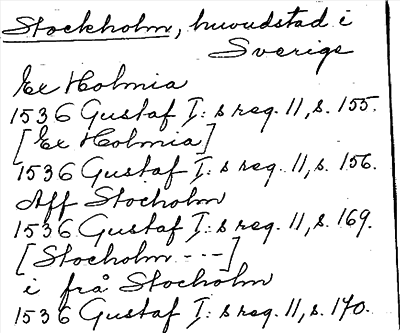 Stockholm, huvudstad i
Sverige
Ex Holmia
1536 Gustaf I:s reg. 11, s. 155.
[Ex Holmia]
1536 Gustaf I:s reg. 11, s. 156.
Aff Stocholm
1536 Gustaf I:s reg. 11, s. 169.
[Stocholm ---]
i frå Stocholm
1536 Gustaf I:s reg. 11, s. 170.